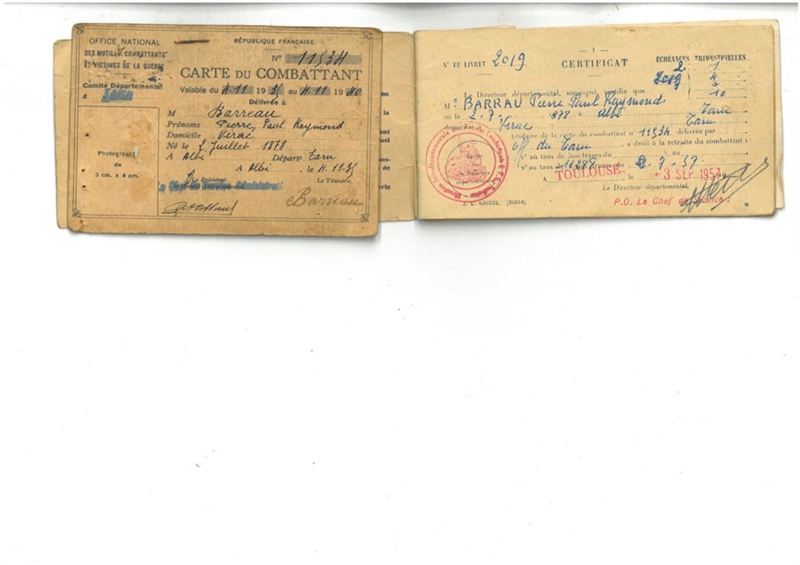 OFFICE NATIONAL
DES MUTILÉS, COMBATTANTS
ET VICTIMES DE LA GUERRE
Comité Départemental
Photographie
de
3 cm. x 4 cm.
RÉPUBLIQUE FRANÇAISE.
N° 11534
CARTE DU COMBATTANT
Valable du 4.11 1935 au 4.11 1940
Délivrée à
M Barreau
Prénoms Pierre, Paul, Raymond
Domicile Virac
Né le 2 Juillet 1878
A Albi Départ. Tarn
A Albi le 4.11.35
Le Président Le Titulaire,
Barreau
N° DU LIVRET 2019
— 1 —
CERTIFICAT
ÉCHÉANCES TRIMESTRIELLES
2 1
4
7 10
Directeur départemental, soussigné certifie que
M. BARRAU Pierre Paul Raymond
né le 2.7. 1878 Albi Tarn
Virac Tarn
titulaire de la carte du combattant n° 11534 délivrée par
off du Tarn a droit à la retraite du combattant :
N° au taux de
N° au taux 11287 du 2.7.57
A TOULOUSE, le 3 SEP 1957
Le Directeur départemental,
P.O. Le Chef de Service :